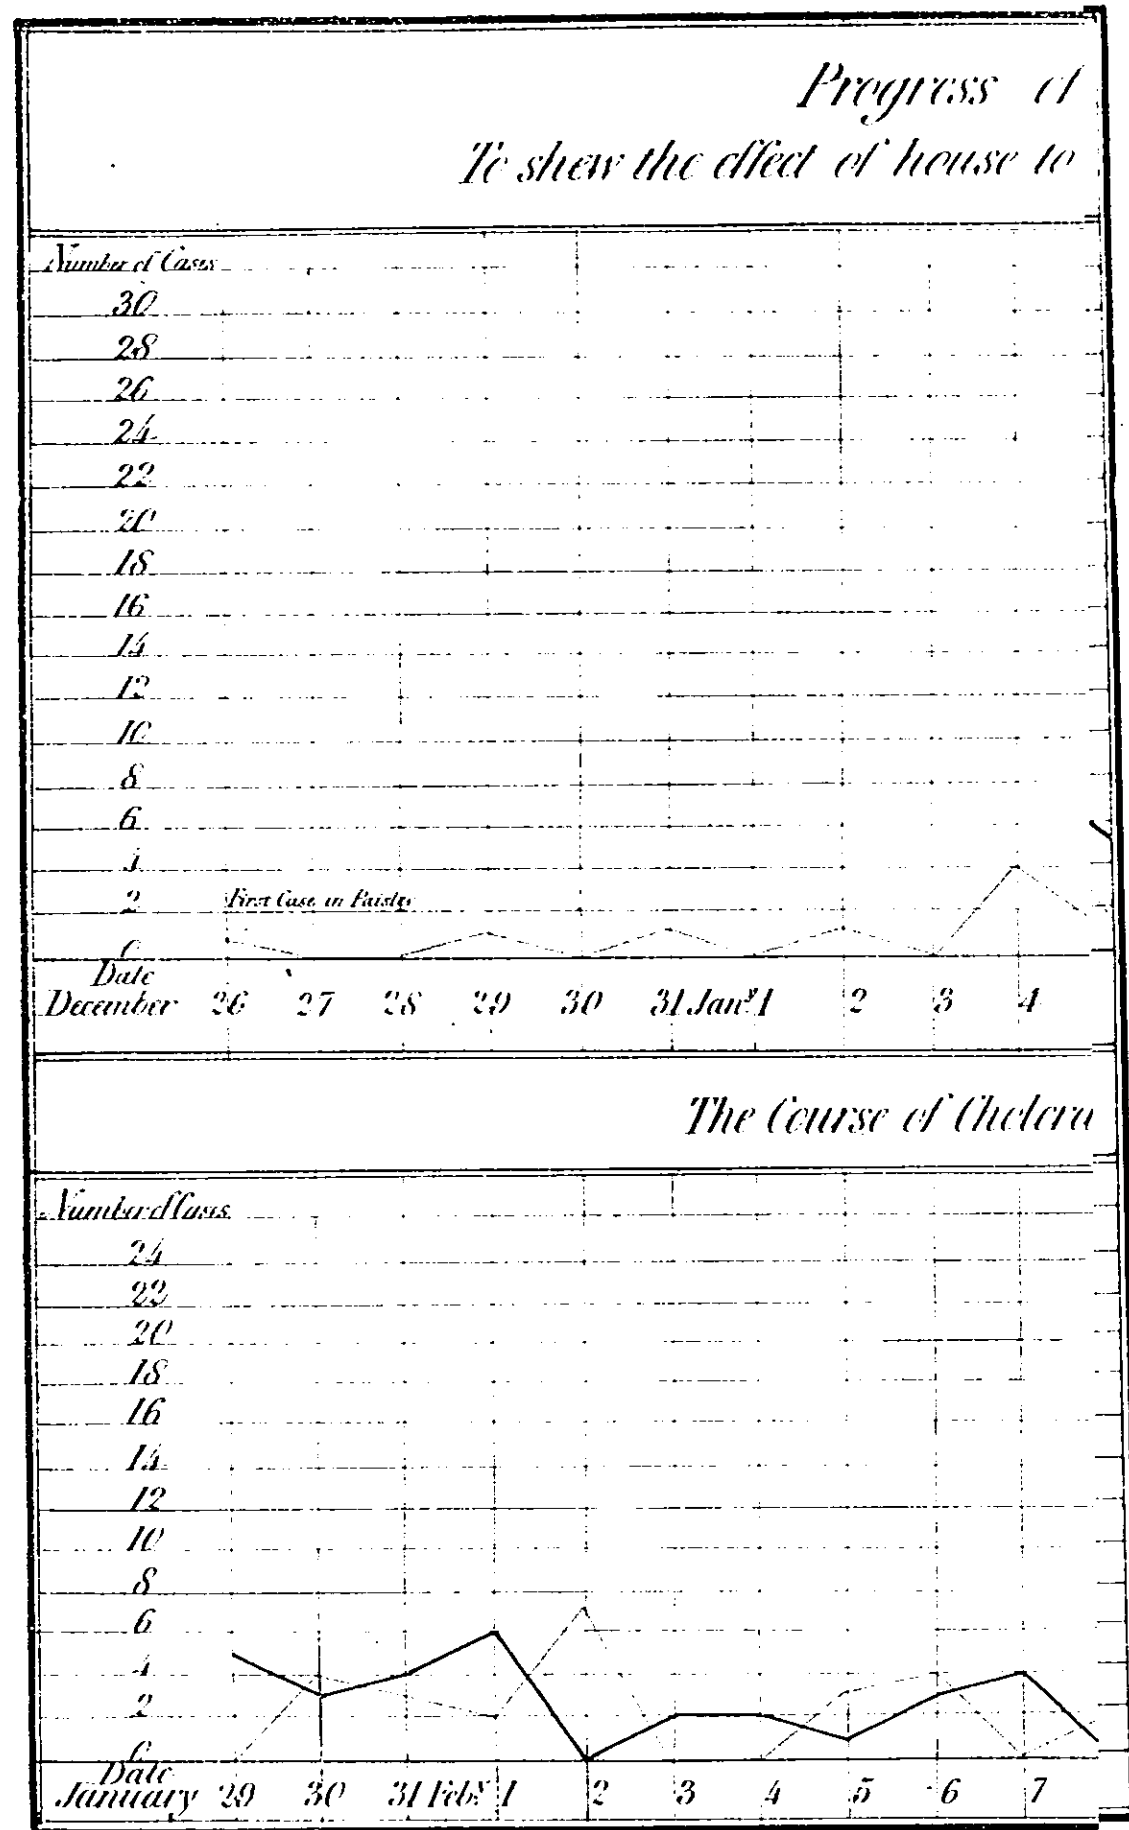 Progress of
To shew the effect of house to
Number of Cases
30
28
26
24
22
20
18
16
14
12
10
8
6
4
2 First Case in Paisley
0
Date
December 26 27 28 29 30 31 Jany 1 2 3 4
The Course of Cholera
Number of Cases
24
22
20
18
16
14
12
10
8
6
4
2
0
Date
January 29 30 31 Feby 1 2 3 4 5 6 7